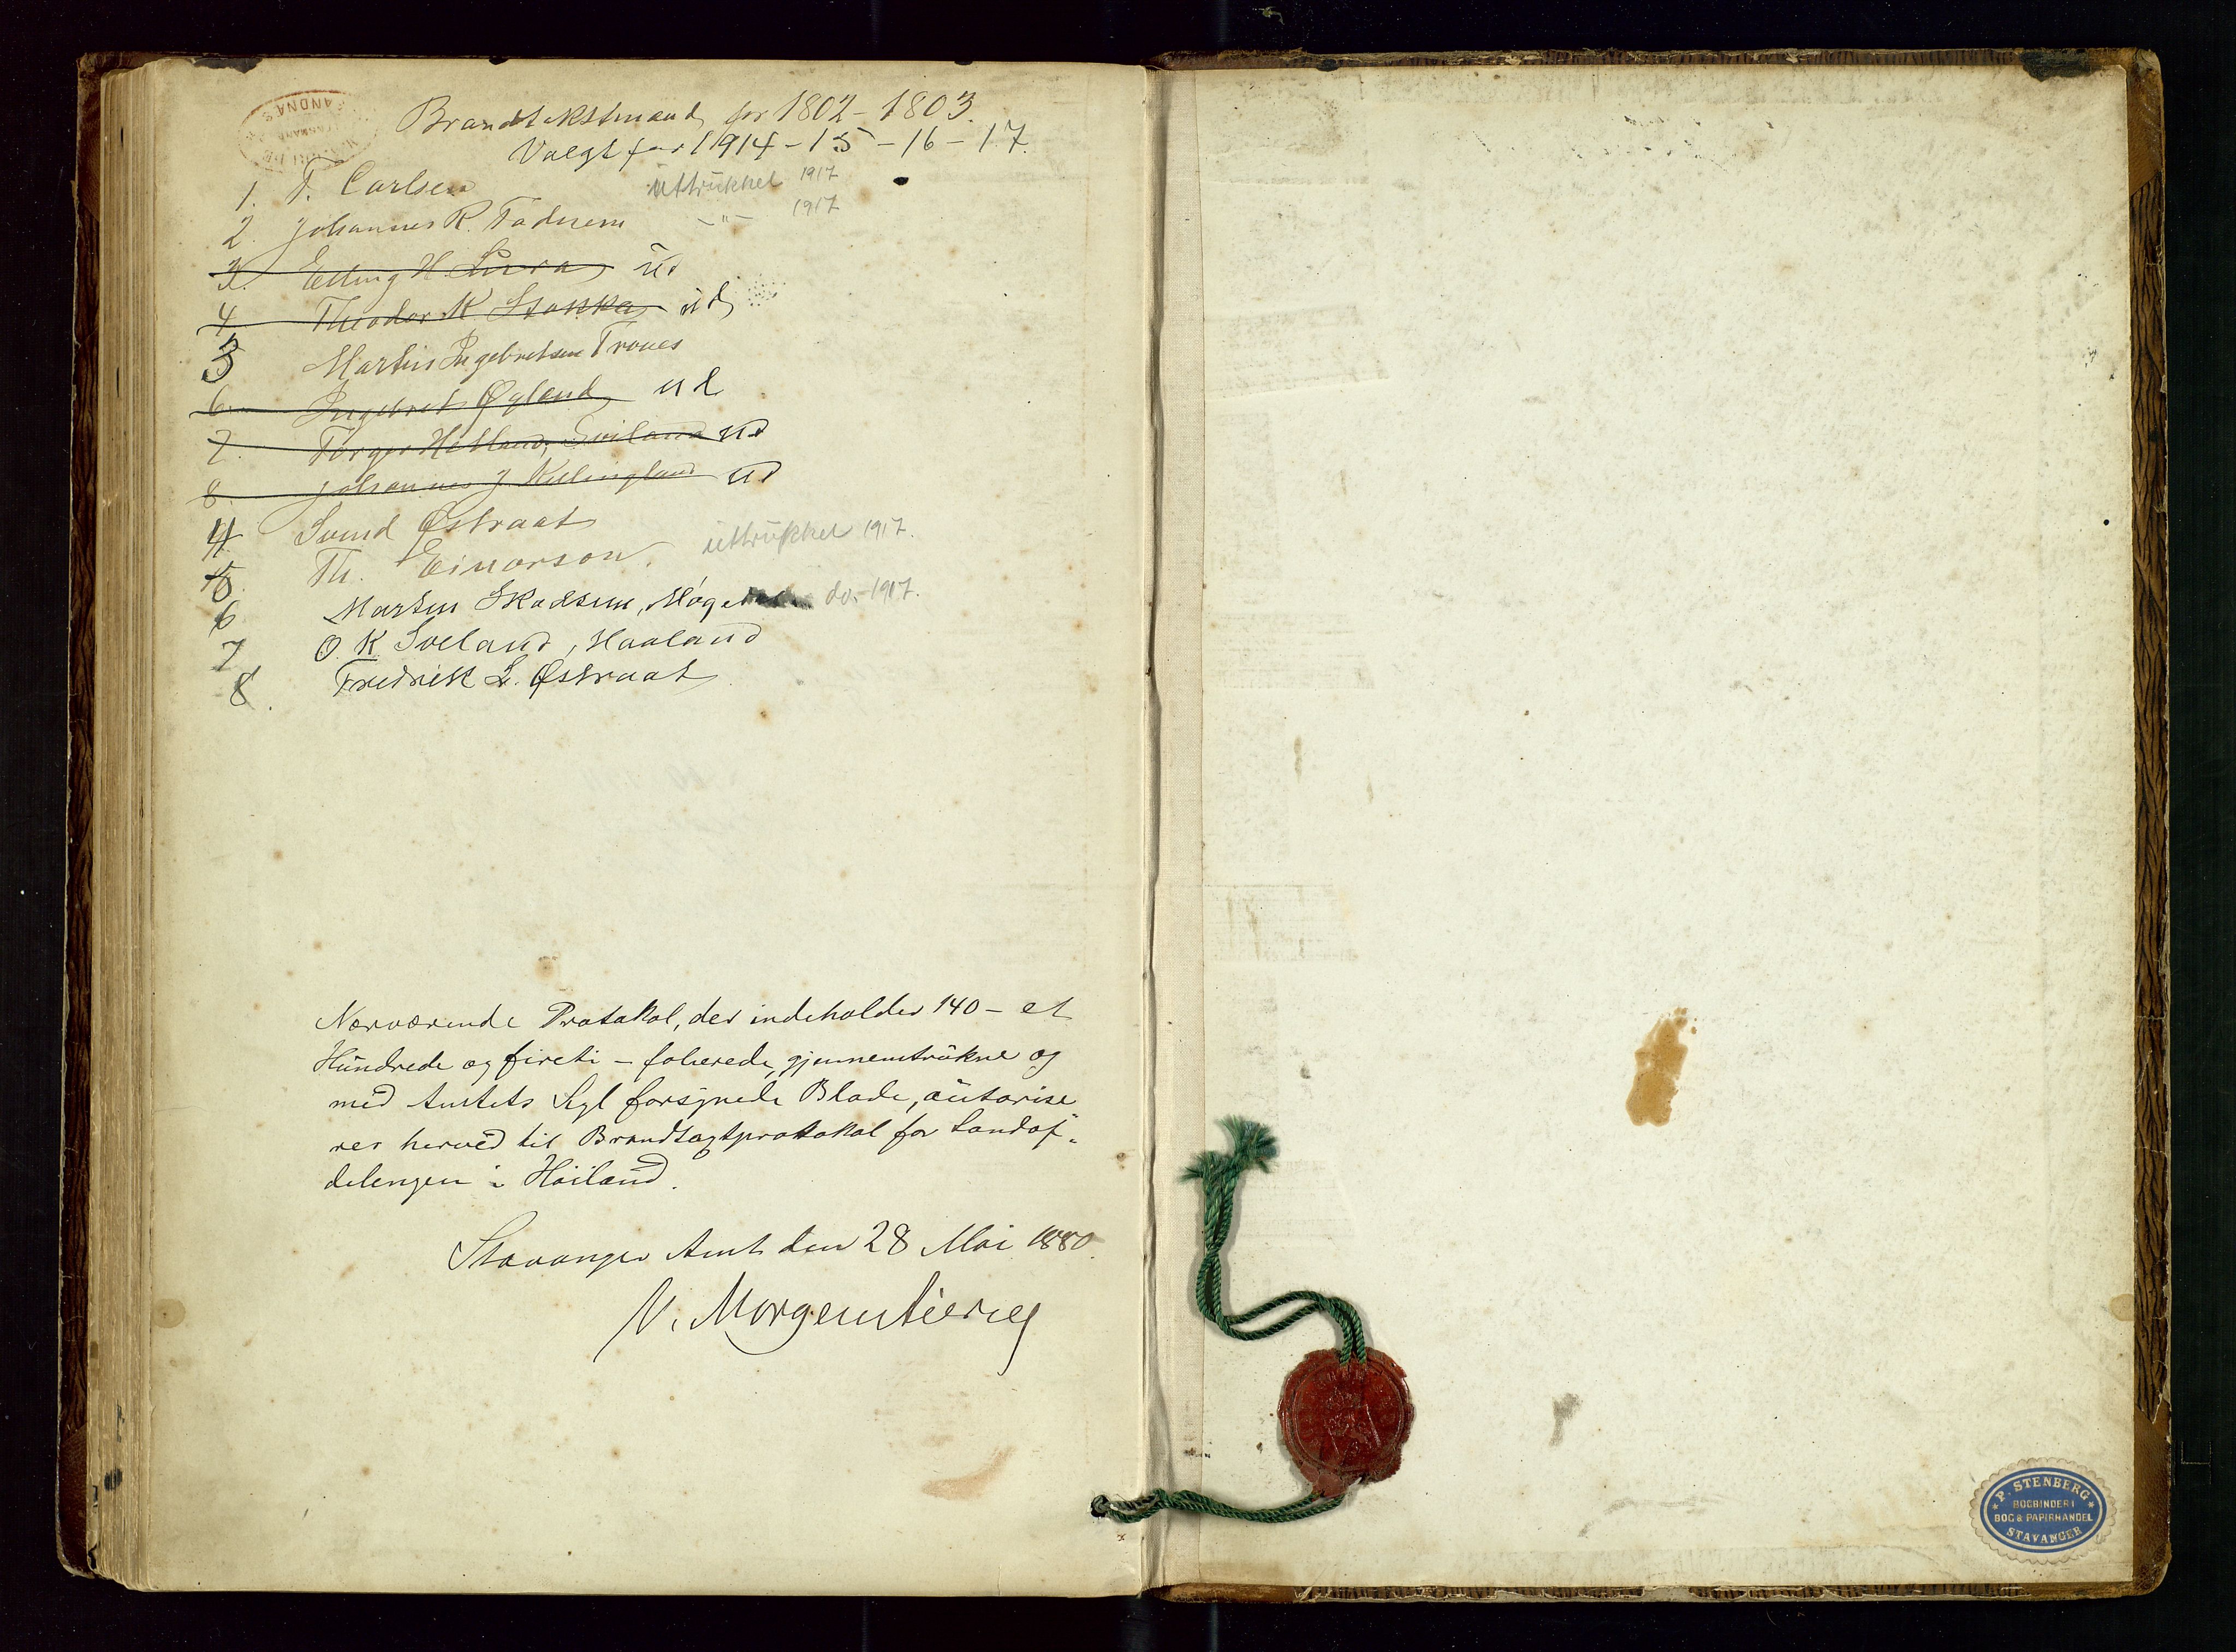 Brandtakstmænd for 1802-1803.
Valgt for 1914-15-16-17.
1. T. Carlsen uttrükket 1917
2. Johannes R. Tadnem -"- 1917
3. Elling H. Lura ud
4 Theodor K Stokka ud
3 Martin Ingebretsen Trones
6 Ingebret Øgland ud
7. Torger Hetland, Sviland ud
8. Johannes J. Kielingland ud
4 Svend Østraat
5 Th. Einarson. uttrükket 1917.
6 Martin Skadsem, do. 1917.
7 O. K. Sveland, Haaland
8. Fredrik L. Østraat
Nærværende Protokol, der indeholder 140 - et
Hundrede og fireti - folierede, gjennemtrukne og
med Amtets Segl forsynede Blade, autorise
res herved til Brandtagtprotokol for Landaf-
delingen i Høiland.
Stavanger Amt den 28 Mai 1880.
V. Morgenstierne
P. STENBERG
BOGBINDERI
BOG & PAPIRHANDEL
STAVANGER